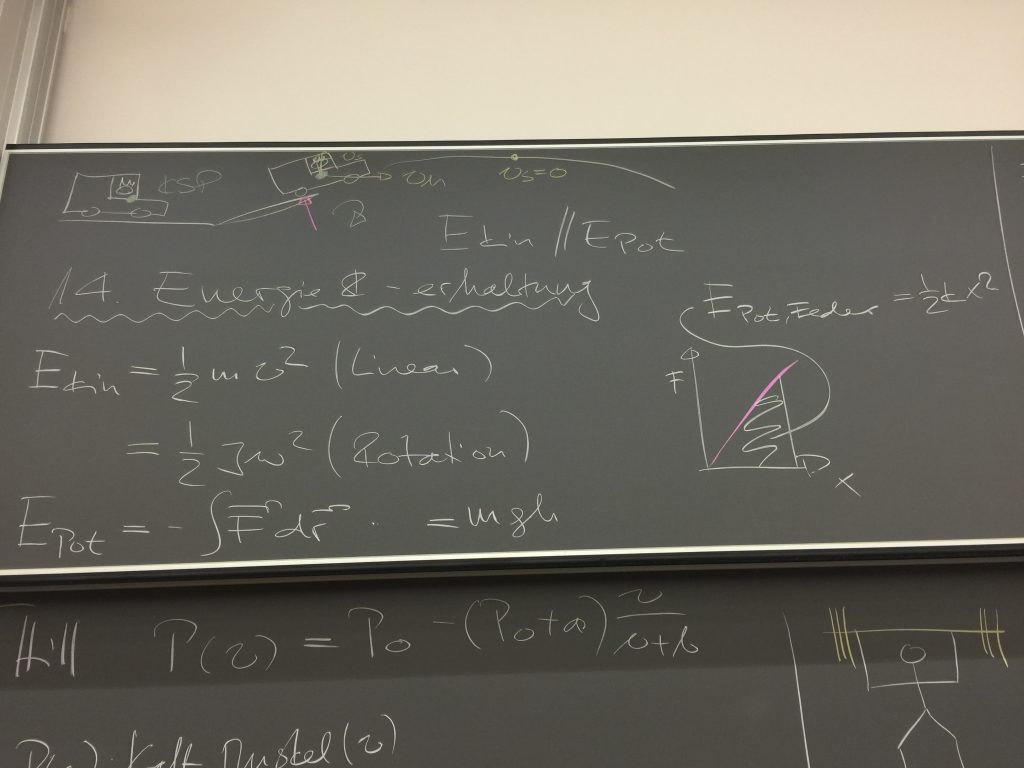 KSP
v_M
v_S=0
E_kin // E_Pot
14. Energie & -erhaltung
E_Pot, Feder = 1/2 k x²
E_kin = 1/2 m v² (Linear)
F
= 1/2 J ω² (Rotation)
x
E_Pot = - ∫ F⃗ dr⃗ . = mgh
Hill P(v) = P₀ - (P₀+a) v/(v+b)
Kraft Muskel (v)